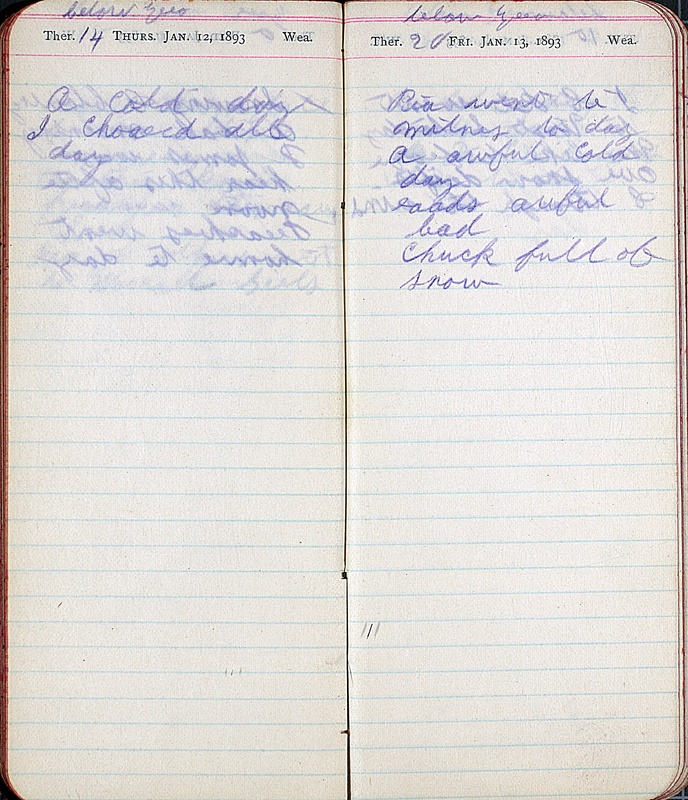 below zero
Ther. 14 THURS. JAN. 12, 1893 Wea.
A cold day
I chored all
day
below zero
Ther. 20 FRI. JAN. 13, 1893 Wea.
went to
milnes to day
A awful cold
day
roads awful
bad
chuck full of
snow